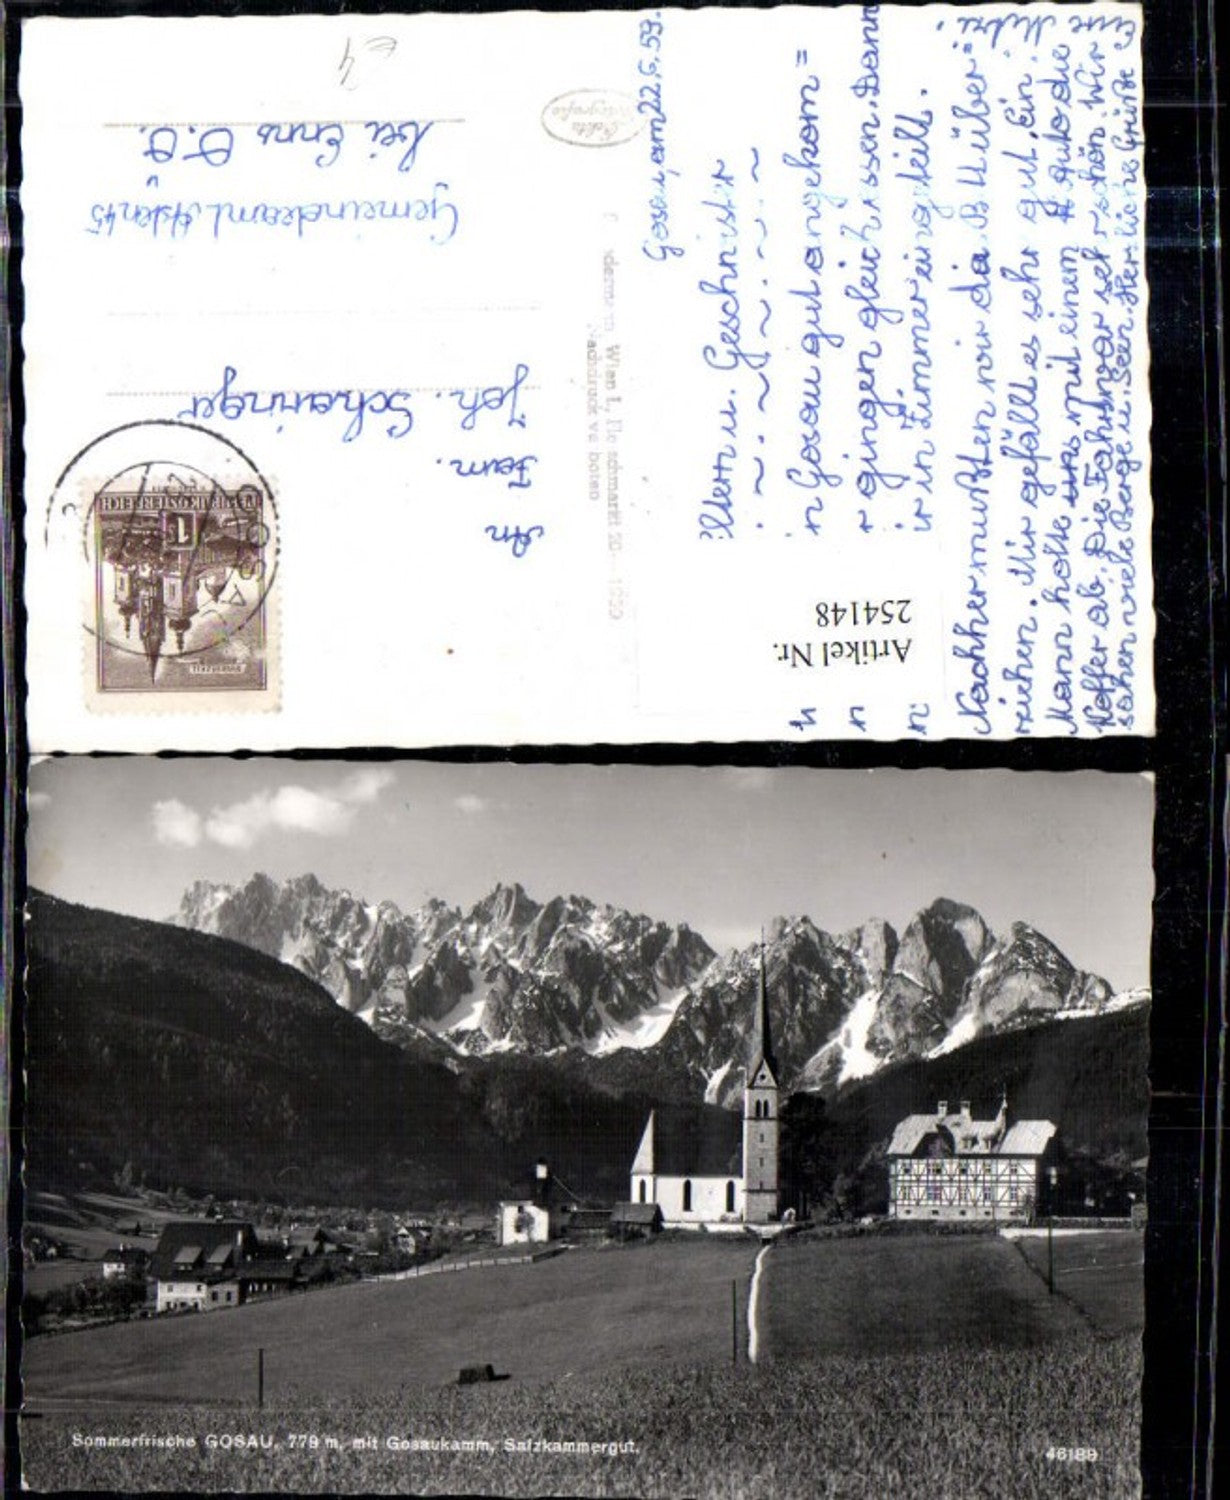 Gosau, am 22.6.59.
Eltern u. Geschwister
in Gosau gut angekom=
gingen gleich essen. Dann
wir in Zimmer eingeteilt.
Nachher mußten wir die B
ziehen. Mir gefällt es sehr gut. Ein
Mann holte uns mit einem Auto die
Koffer ab. Die Fahrt war sehr schön. Wir
sahen viele Berge u. Seen. Herzliche Grüße
Artikel Nr.
254148
Wien I., Fleischmarkt 20
Nachdruck verboten
An
Fam.
Joh. Scharinger
Gemeindeamt Asten 45
bei Enns O.Ö.
REPUBLIK ÖSTERREICH
1
GOSAU
Sommerfrische GOSAU, 779 m, mit Gosaukamm, Salzkammergut.
46189